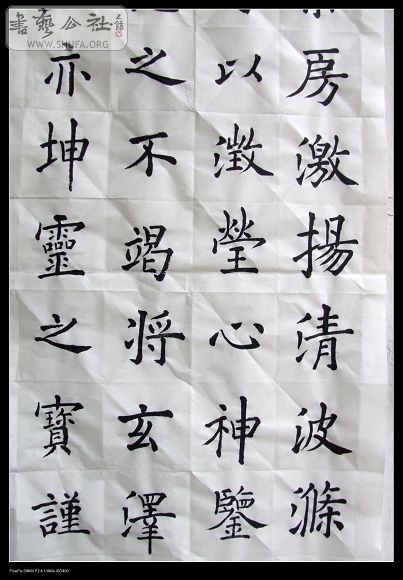 房激揚清波滌
以澂瑩心神鑒
之不竭将玄澤
亦坤靈之寶謹
書藝公社
WWW.SHUFA.ORG